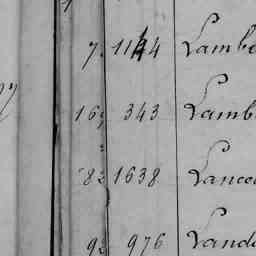 7. 1144 Lambe
163 343 Lamb
82 1638 Lance
92 976 Land